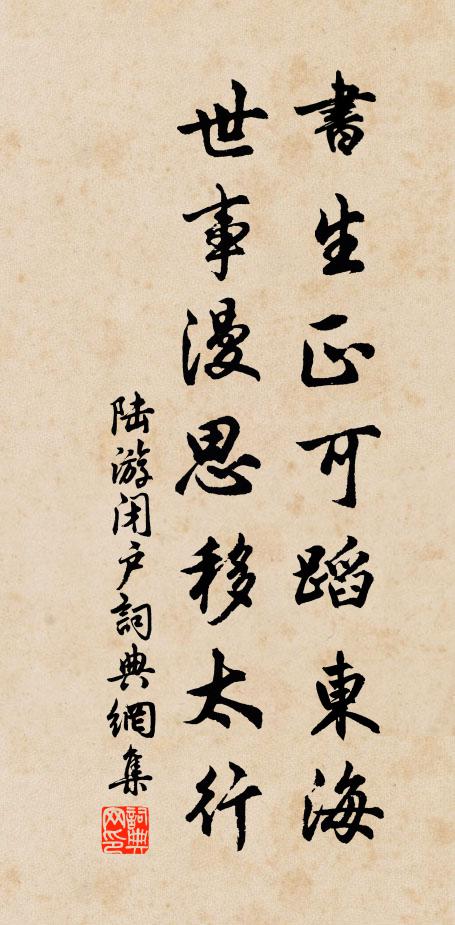 書生正可蹈東海
世事漫思移太行
陸游闭户詞典網集
詞典网印